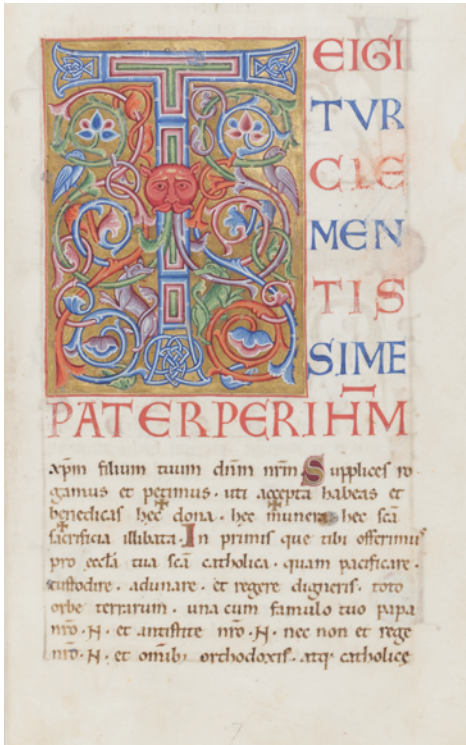 TEIGI
TVR
CLE
MEN
TIS
SIME
PATER PER IHM̄
xp̄m filium tuum dn̄m nr̄m. Supplices ro
gamus et petimus. uti accepta habeas et
benedicas hec dona. hec munera hec sc̄a
sacrificia illibata. In primis que tibi offerimus
pro eccl̄a tua sc̄a catholica. quam pacificare.
custodire. adunare. et regere digneris. toto
orbe terrarum. una cum famulo tuo papa
nr̄o. N. et antistite nr̄o. N. nec non et rege
nr̄o. N. et omib; orthodoxis. atq; catholice